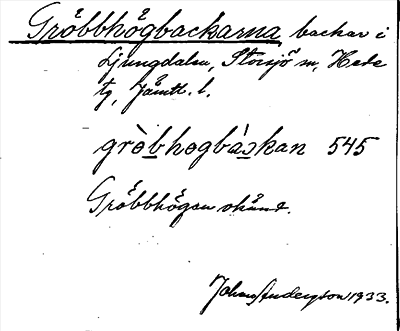 Gröbbhögbackarna backar i
Ljungdalen, Storsjö sn, Hede
tg, Jämtl. l.
grèbhogbàskan 545
Gröbbhögen okänt.
Johan Anderzson 1933.